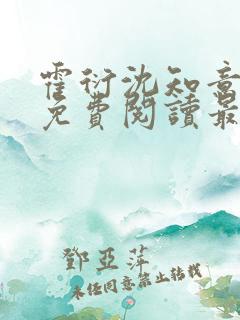 霍衍沈知意
免費閱讀最
鄧亞萍
未经同意禁止转载